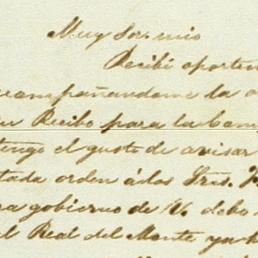 Muy Sor. mio
Recibí oportun
acompañandome la o
su Recibo para la Com
tengo el gusto de avisar
tada orden á los Sres.
ra gobierno de V. debo
el Real del Monte ya h